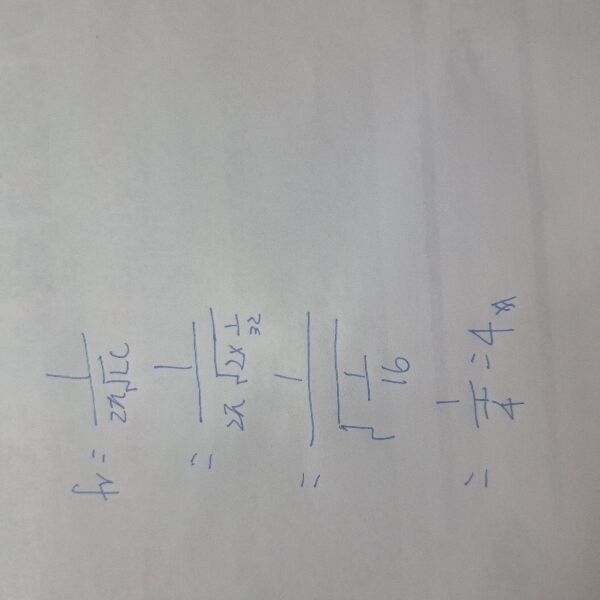 fr = 1/2π√LC
= 1/2π√2×1/32
= 1/√1/16
= 1/1/4 = 4